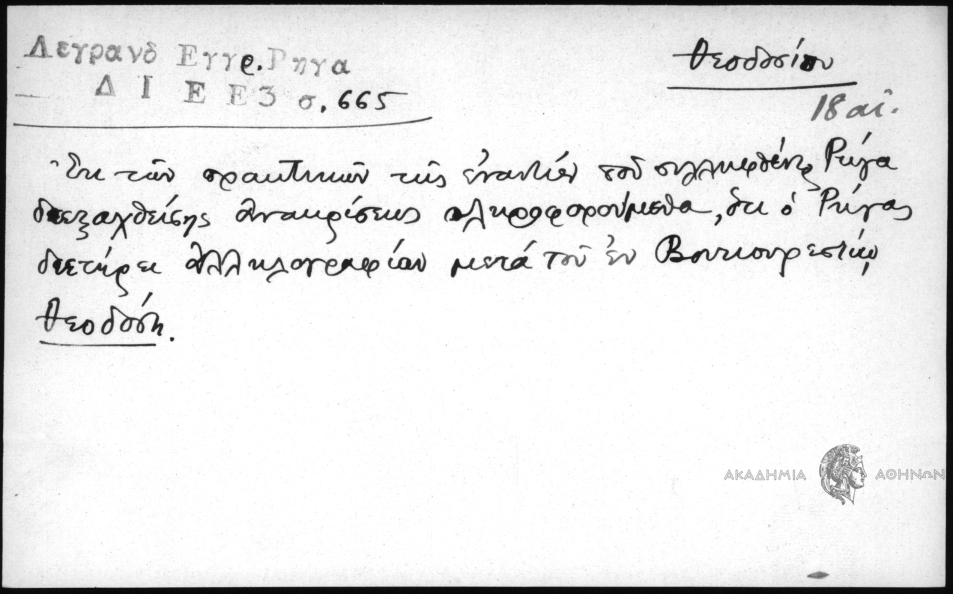 Λεγρανδ Εγγρ. Ρηγα
Δ Ι Ε Ε 3 σ. 665
Θεοδοσίου
18 αἰ.
Ἐκ τῶν πρακτικῶν τῆς ἐναντίον τοῦ συλληφθέντος Ρήγα
διεξαχθείσης ἀνακρίσεως πληροφορούμεθα, ὅτι ὁ Ρήγας
διετήρει ἀλληλογραφίαν μετά τοῦ ἐν Βουκουρεστίῳ
Θεοδόση.
ΑΚΑΔΗΜΙΑ ΑΘΗΝΩΝ